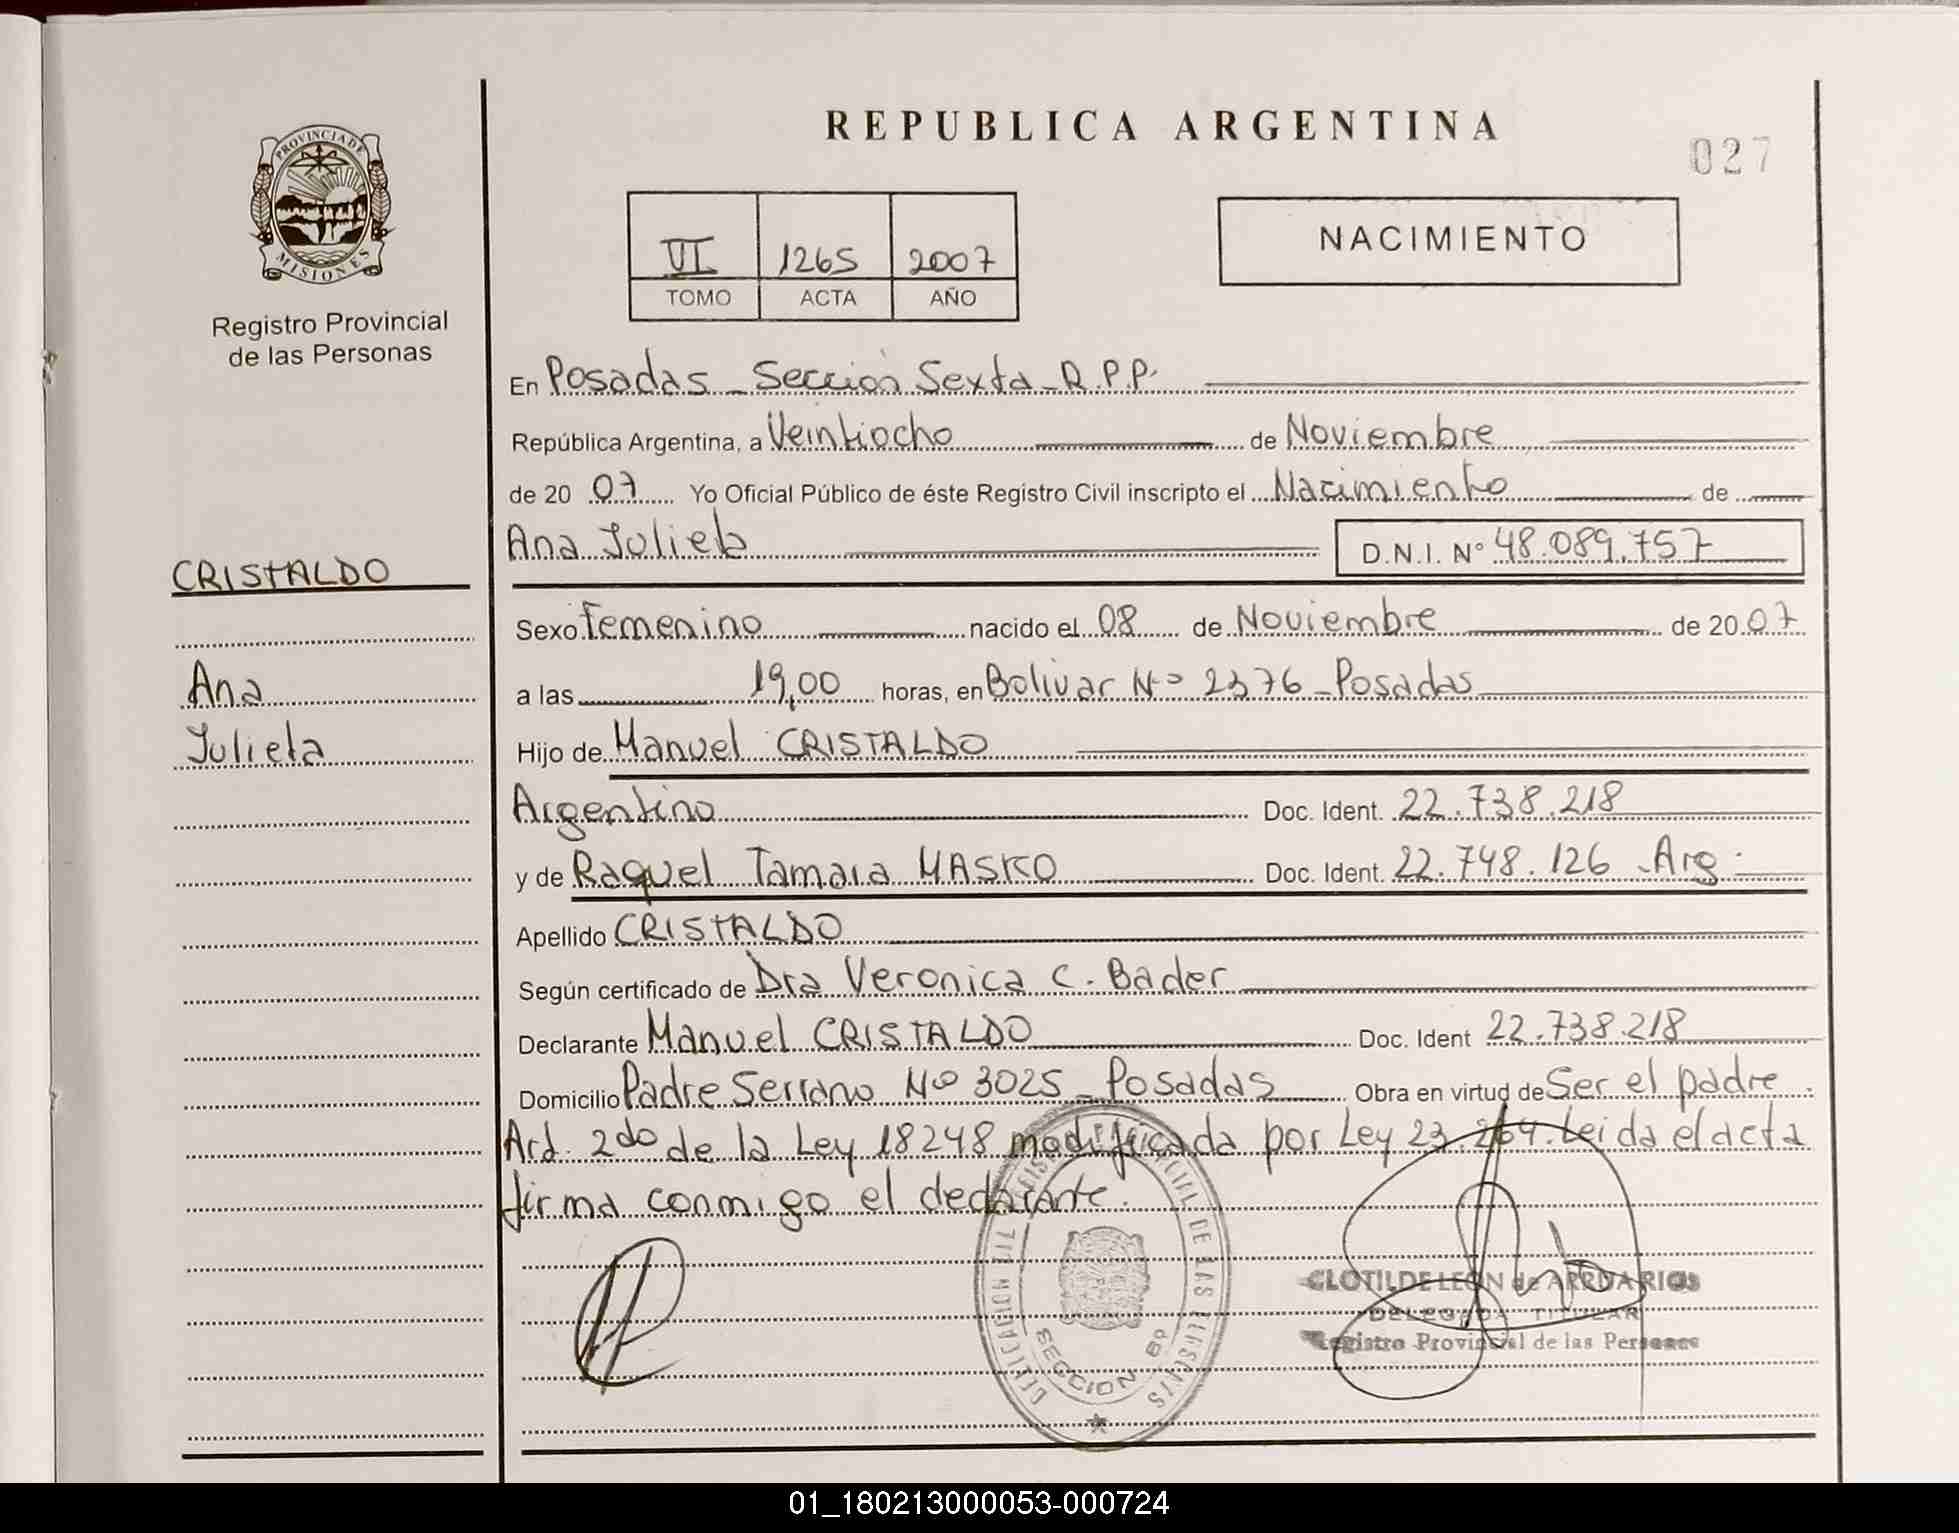 REPUBLICA ARGENTINA
027
PROVINCIA DE
MISIONES
Registro Provincial
de las Personas
VI 1265 2007
TOMO ACTA AÑO
NACIMIENTO
En Posadas - Sección Sexta - R.P.P.
República Argentina, a Veintiocho de Noviembre
de 20 07 Yo Oficial Público de éste Registro Civil inscripto el Nacimiento de
Ana Julieta D.N.I. N° 48.089.757
CRISTALDO
Ana
Julieta
Sexo Femenino nacido el 08 de Noviembre de 20 07
a las 19,00 horas, en Bolivar Nº 2376 - Posadas
Hijo de Manuel CRISTALDO
Argentino Doc. Ident. 22.738.218
y de Raquel Tamara MASKO Doc. Ident. 22.748.126 - Arg.
Apellido CRISTALDO
Según certificado de Dra Veronica C. Bader
Declarante Manuel CRISTALDO Doc. Ident 22.738.218
Domicilio Padre Serrano Nº 3025 - Posadas Obra en virtud de Ser el padre.
Art. 2do de la Ley 18248 modificada por Ley 23.264. Leida el acta
firma conmigo el declarante.
SECCION 6º
CLOTILDE LEON de ARRUA RIOS
DELEGADA TITULAR
Registro Provincial de las Personas
01_180213000053-000724